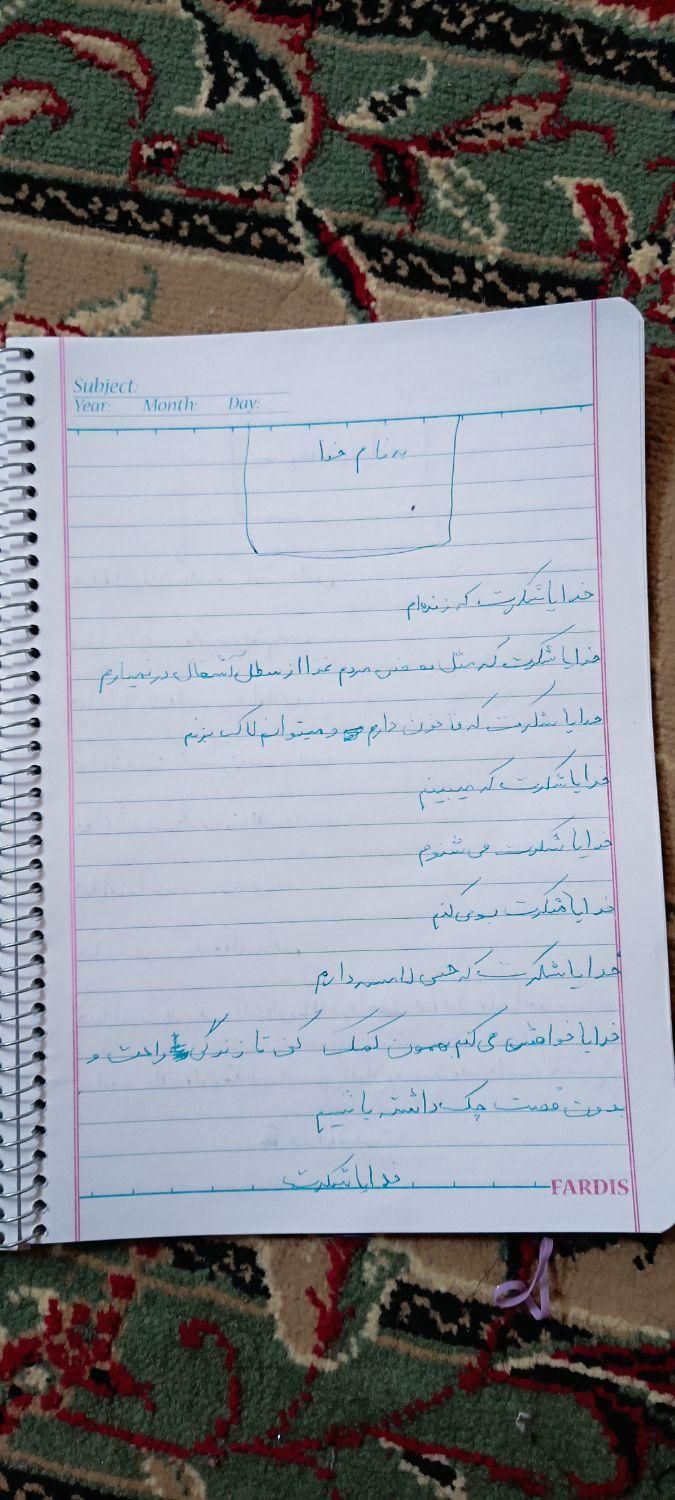 Subject:
Year: Month: Day:
به نام خدا
خدایا شکرت که زنده‌ام
خدایا شکرت که مثل بعضی مردم غذا از سطل آشغال در نمیارم
خدایا شکرت که ناخون دارم و میتوانم لاک بزنم
خدایا شکرت که میبینم
خدایا شکرت می شنوم
خدایا شکرت بو می کنم
خدایا شکرت که حس لامسه دارم
خدایا خواهش می کنم بهمون کمک کنی تا زندگی راحت و
بدون قصت چک داشته باشیم
خدایا شکرت
FARDIS